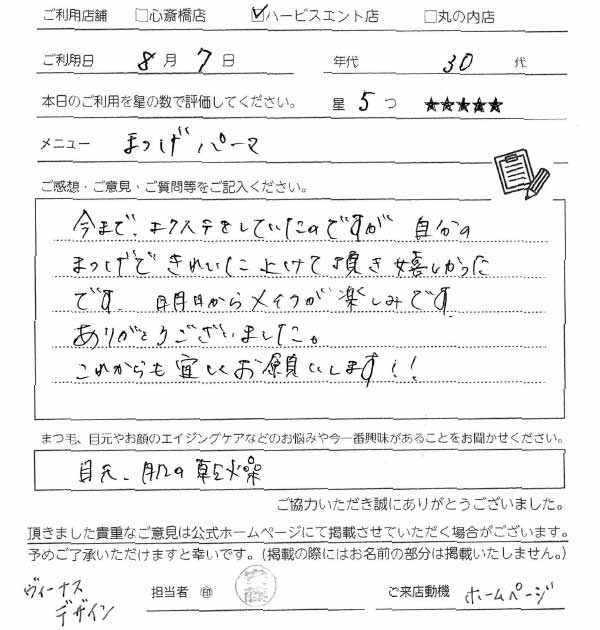 ご利用店舗 □心斎橋店 ☑ハービスエント店 □丸の内店
ご利用日 8月 7日 年代 30代
本日のご利用を星の数で評価してください。 星 5つ ★★★★★
メニュー まつげパーマ
ご感想・ご意見・ご質問等をご記入ください。
今まで、エクステをしていたのですが 自分の
まつげできれいに上げて頂き嬉しかった
です。明日からメイクが楽しみです。
ありがとうございました。
これからも宜しくお願いします!!
まつ毛、目元やお顔のエイジングケアなどのお悩みや今一番興味があることをお聞かせください。
目元、肌の乾燥
ご協力いただき誠にありがとうございました。
頂きました貴重なご意見は公式ホームページにて掲載させていただく場合がございます。
予めご了承いただけますと幸いです。(掲載の際にはお名前の部分は掲載いたしません。)
ヴィーナス
デザイン
担当者 ㊞ ご来店動機 ホームページ